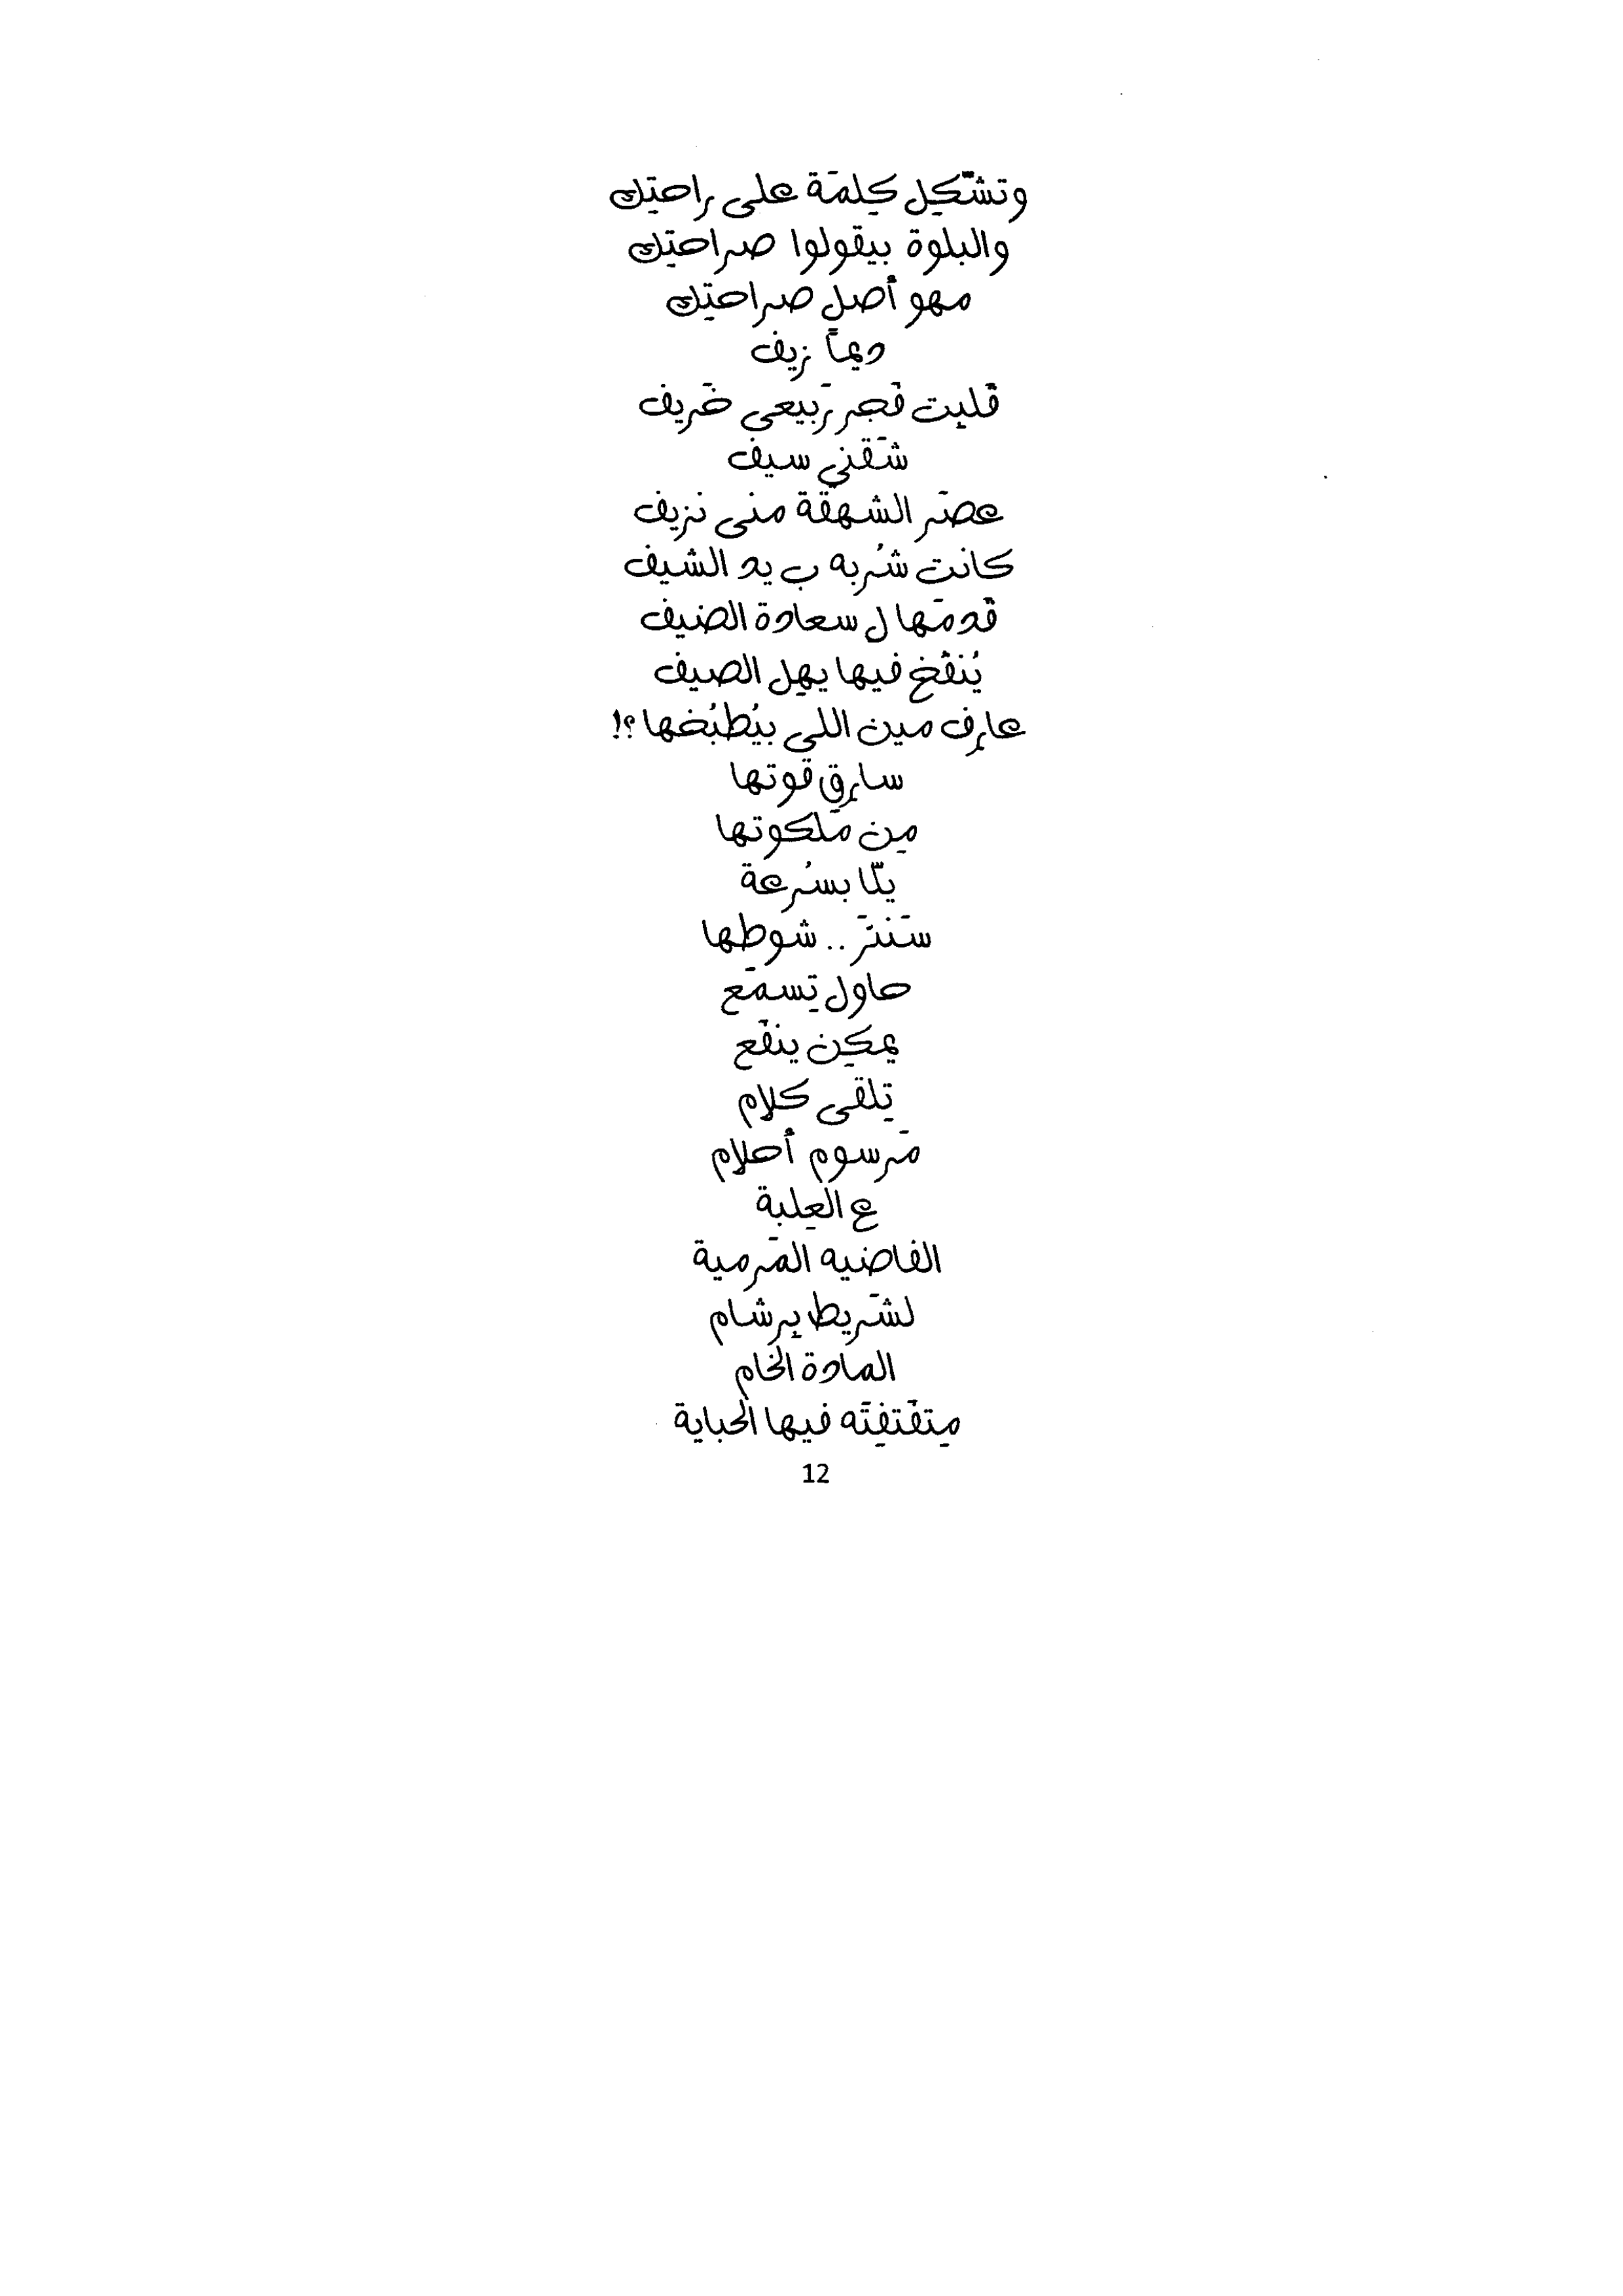 وتشَّكِل كِلمَة على راحتِك
والبلوة بيقولوا صراحتِك
مهو أصلِ صراحتِك
ديماً زيف
قَلبِت فَجر رَبيعى خَريف
شَقني سيف
عصَر الشهقة منى نزيف
كانت شُربه ب يد الشيف
قَدمَها ل سعادة الضيف
يُنفُخ فيها يهِل الصيف
عارِف مين اللى بيُطبُخها؟!
سارِق قوتها
مِن مَلكوتها
يلّا بسُرعة
سَنتَر .. شوطها
حاول تِسمَع
يمكِن ينفَع
تِلقى كلام
مَرسوم أحلام
ع العِلبة
الفاضيه المَرمية
لشَريط بِرشام
المادة الخام
مِتفَتفِتَه فيها الحباية
12